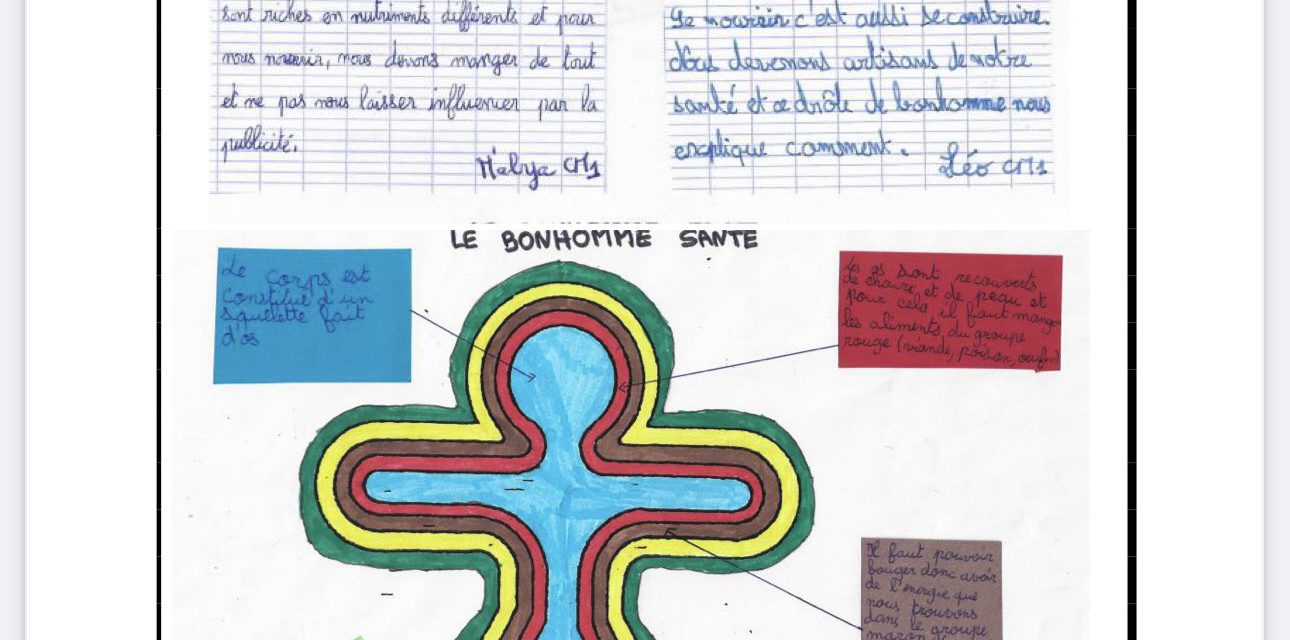 sont riches en nutriments différents et pour
nous nourrir, nous devons manger de tout
et ne pas nous laisser influencer par la
publicité.
Maëlya CM1
Se nourrir c'est aussi se construire.
Nous devenons artisans de notre
santé et ce drôle de bonhomme nous
explique comment.
Léo CM1
LE BONHOMME SANTE
Le corps est
constitué d'un
squelette fait
d'os
Les os sont recouverts
de chaire, et de peau et
pour cela il faut manger
les aliments, du groupe
rouge (viande, poison, oeufs)
Il faut pouvoir
bouger donc avoir
de l'énergie que
nous trouvons
dans le groupe
maron